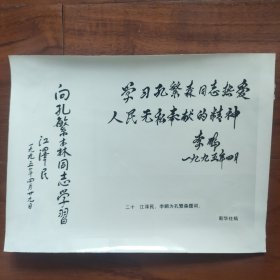 向孔繁森同志学習
江澤民
一九九五年四月廿九日
学习孔繁森同志热爱
人民无私奉献的精神
李鹏
一九九五年四月
二十 江泽民、李鹏为孔繁森题词。
新华社稿